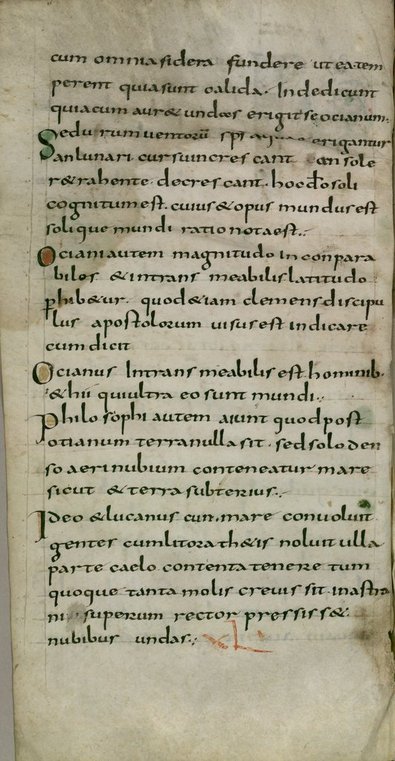 cum omnia sidera fundere ut ea tem
perent quia sunt calida. Inde dicunt
quia cum aur& undas erigit se ocianum.
Sed utrum ventorū sps erigantur
an lunari cursu increscant an sole
r&rahente decrescant. hoc do soli
cognitum est. cuius & opus mundus est
solique mundi ratio nota est.
Ociani autem magnitudo inconpara
biles & intrans meabilis latitudo
phib&ur. quod &iam clemens discipu
lus apostolorum visus est indicare
cum dicit
Ocianus Intransmeabilis est hominib.
& hii qui ultra eo sunt mundi.
Philosophi autem aiunt quod post
otianum terra nulla sit. sed solo den
so aeri nubium conteneatur mare
sicut & terra subterius.
Ideo & lucanus cum mare convoluit
gentes cum litora th&is noluit ulla
parte caelo contenta tenere tum
quoque tanta molis crevissit in astra
ni superum rector pressiss&
nubibus undas. xLi